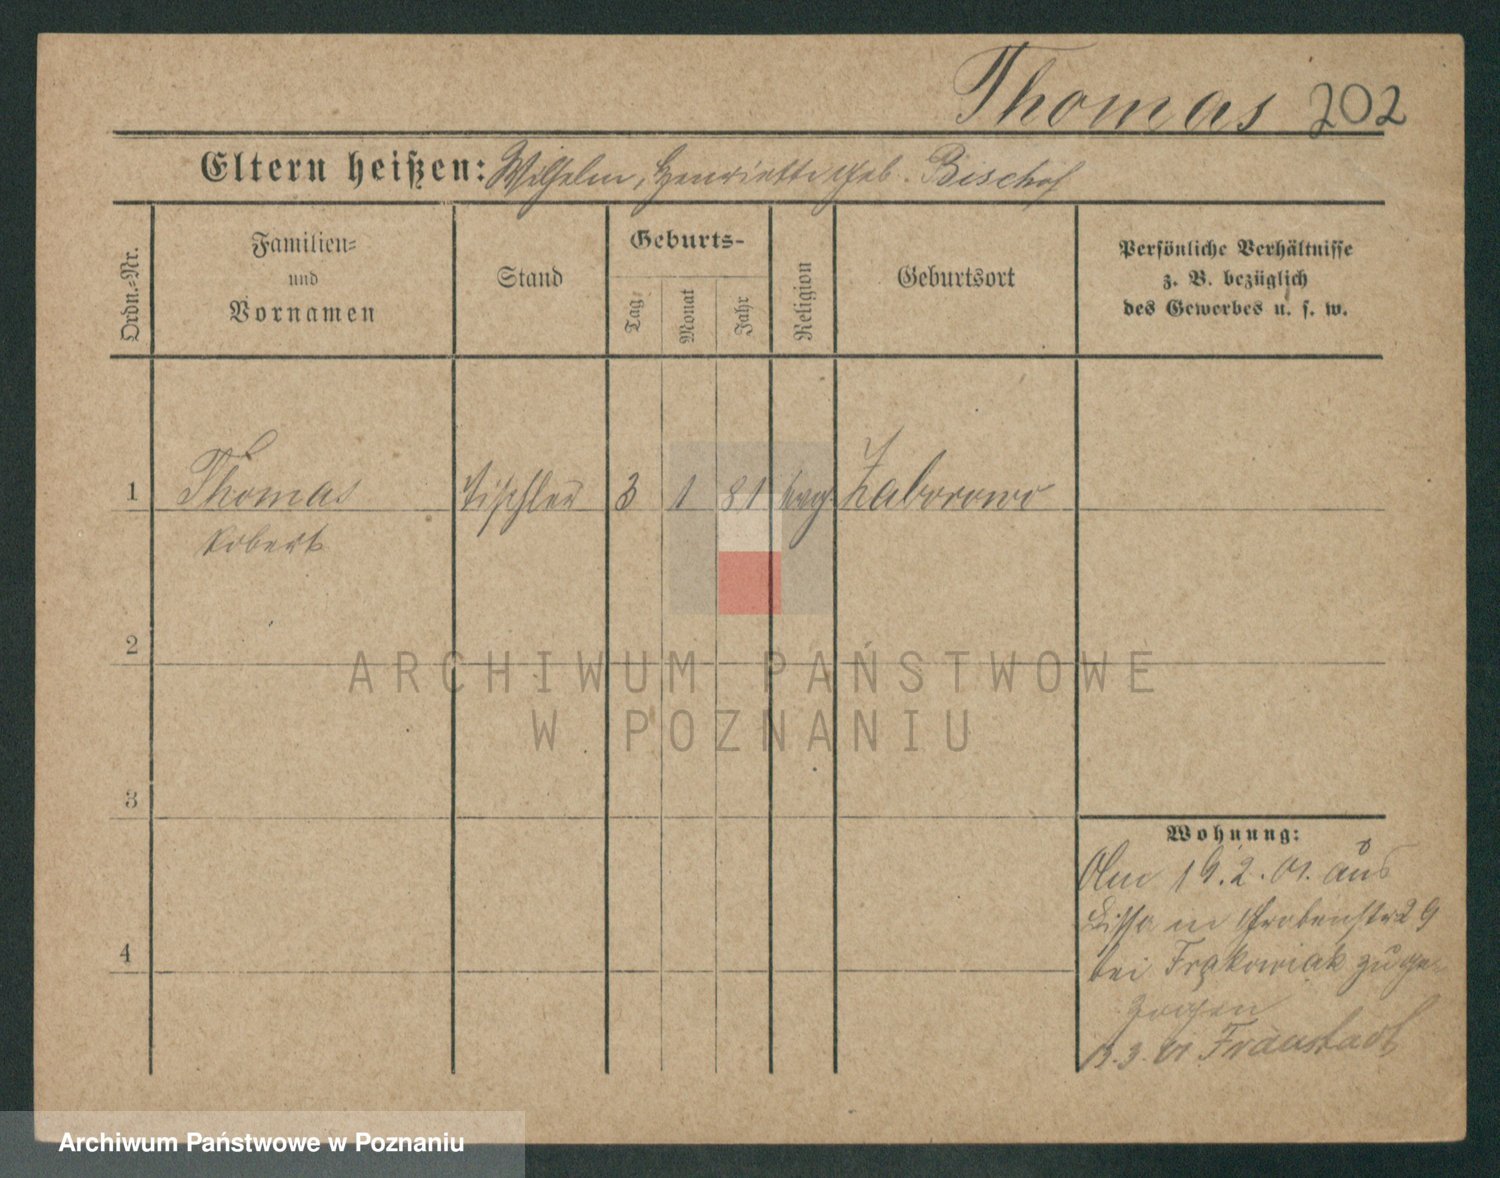 Thomas 202
Eltern heißen: Wilhelm, Henriette geb. Bischof
Ordn.-Nr.
Familien-
und
Vornamen
Stand
Geburts-
Tag
Monat
Jahr
Religion
Geburtsort
Persönliche Verhältnisse
z. B. bezüglich
des Gewerbes u. s. w.
1 Thomas Tischler 3 1 81 evg. Zaborowo
Robert
2
ARCHIWUM PAŃSTWOWE
W POZNANIU
3
Wohnung:
Am 19.2.01. aus
Lissa in Grobenstr 29
bei Frąkowiak zuge-
zogen
4
13.3.01 Fraustadt
Archiwum Państwowe w Poznaniu